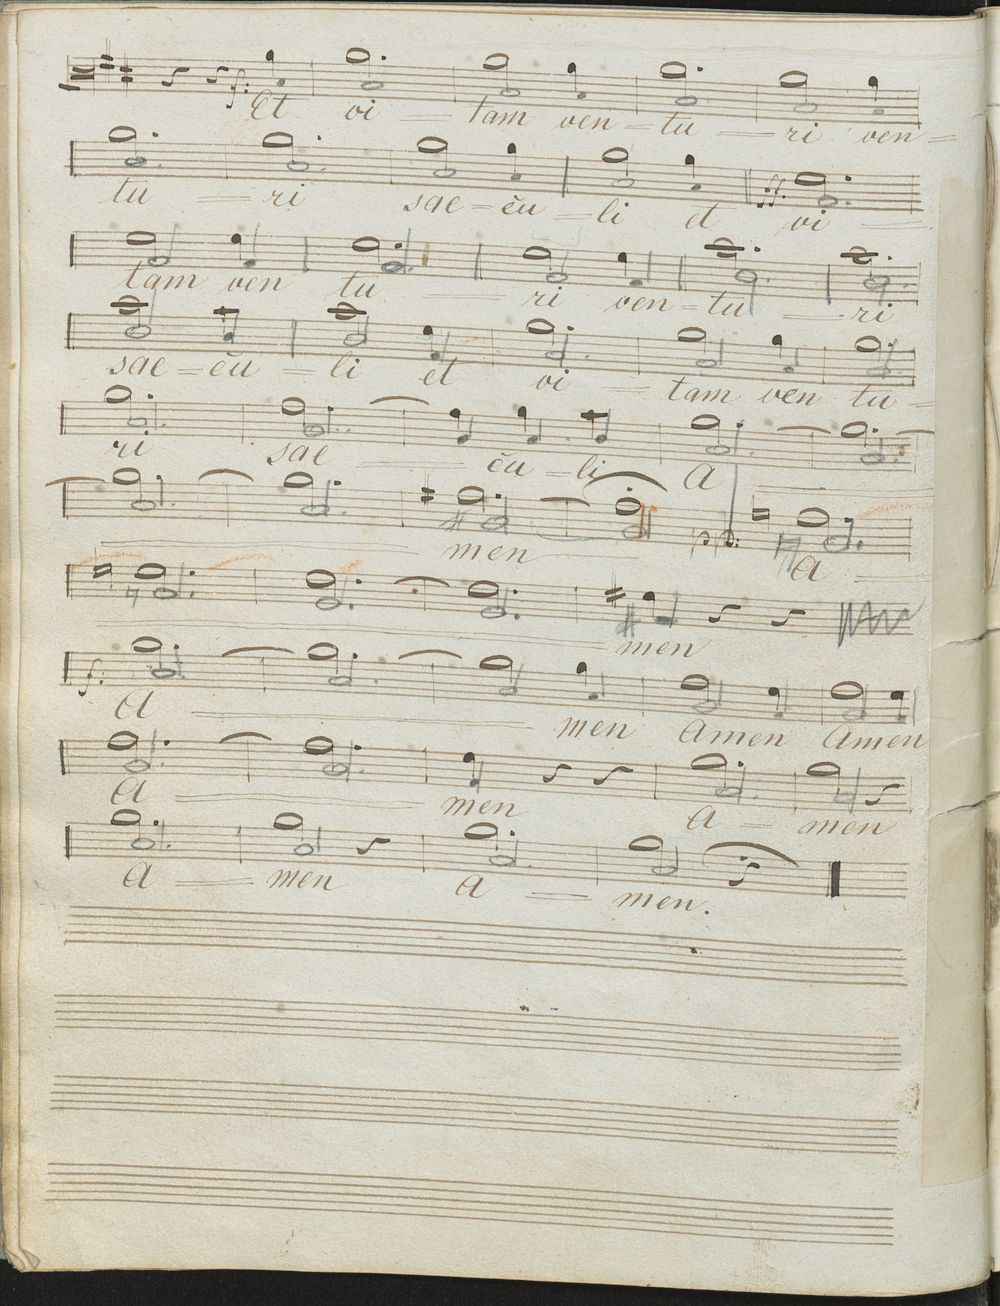 f: Et vi tam ven - tu ri ven -
tu ri sae - cu li et ff: vi
tam ven tu ri ven - tu ri
sae - cu li et vi tam ven tu
ri sae cu li A
men pp: A
men
f: A men Amen Amen
A men A men
A men A men.